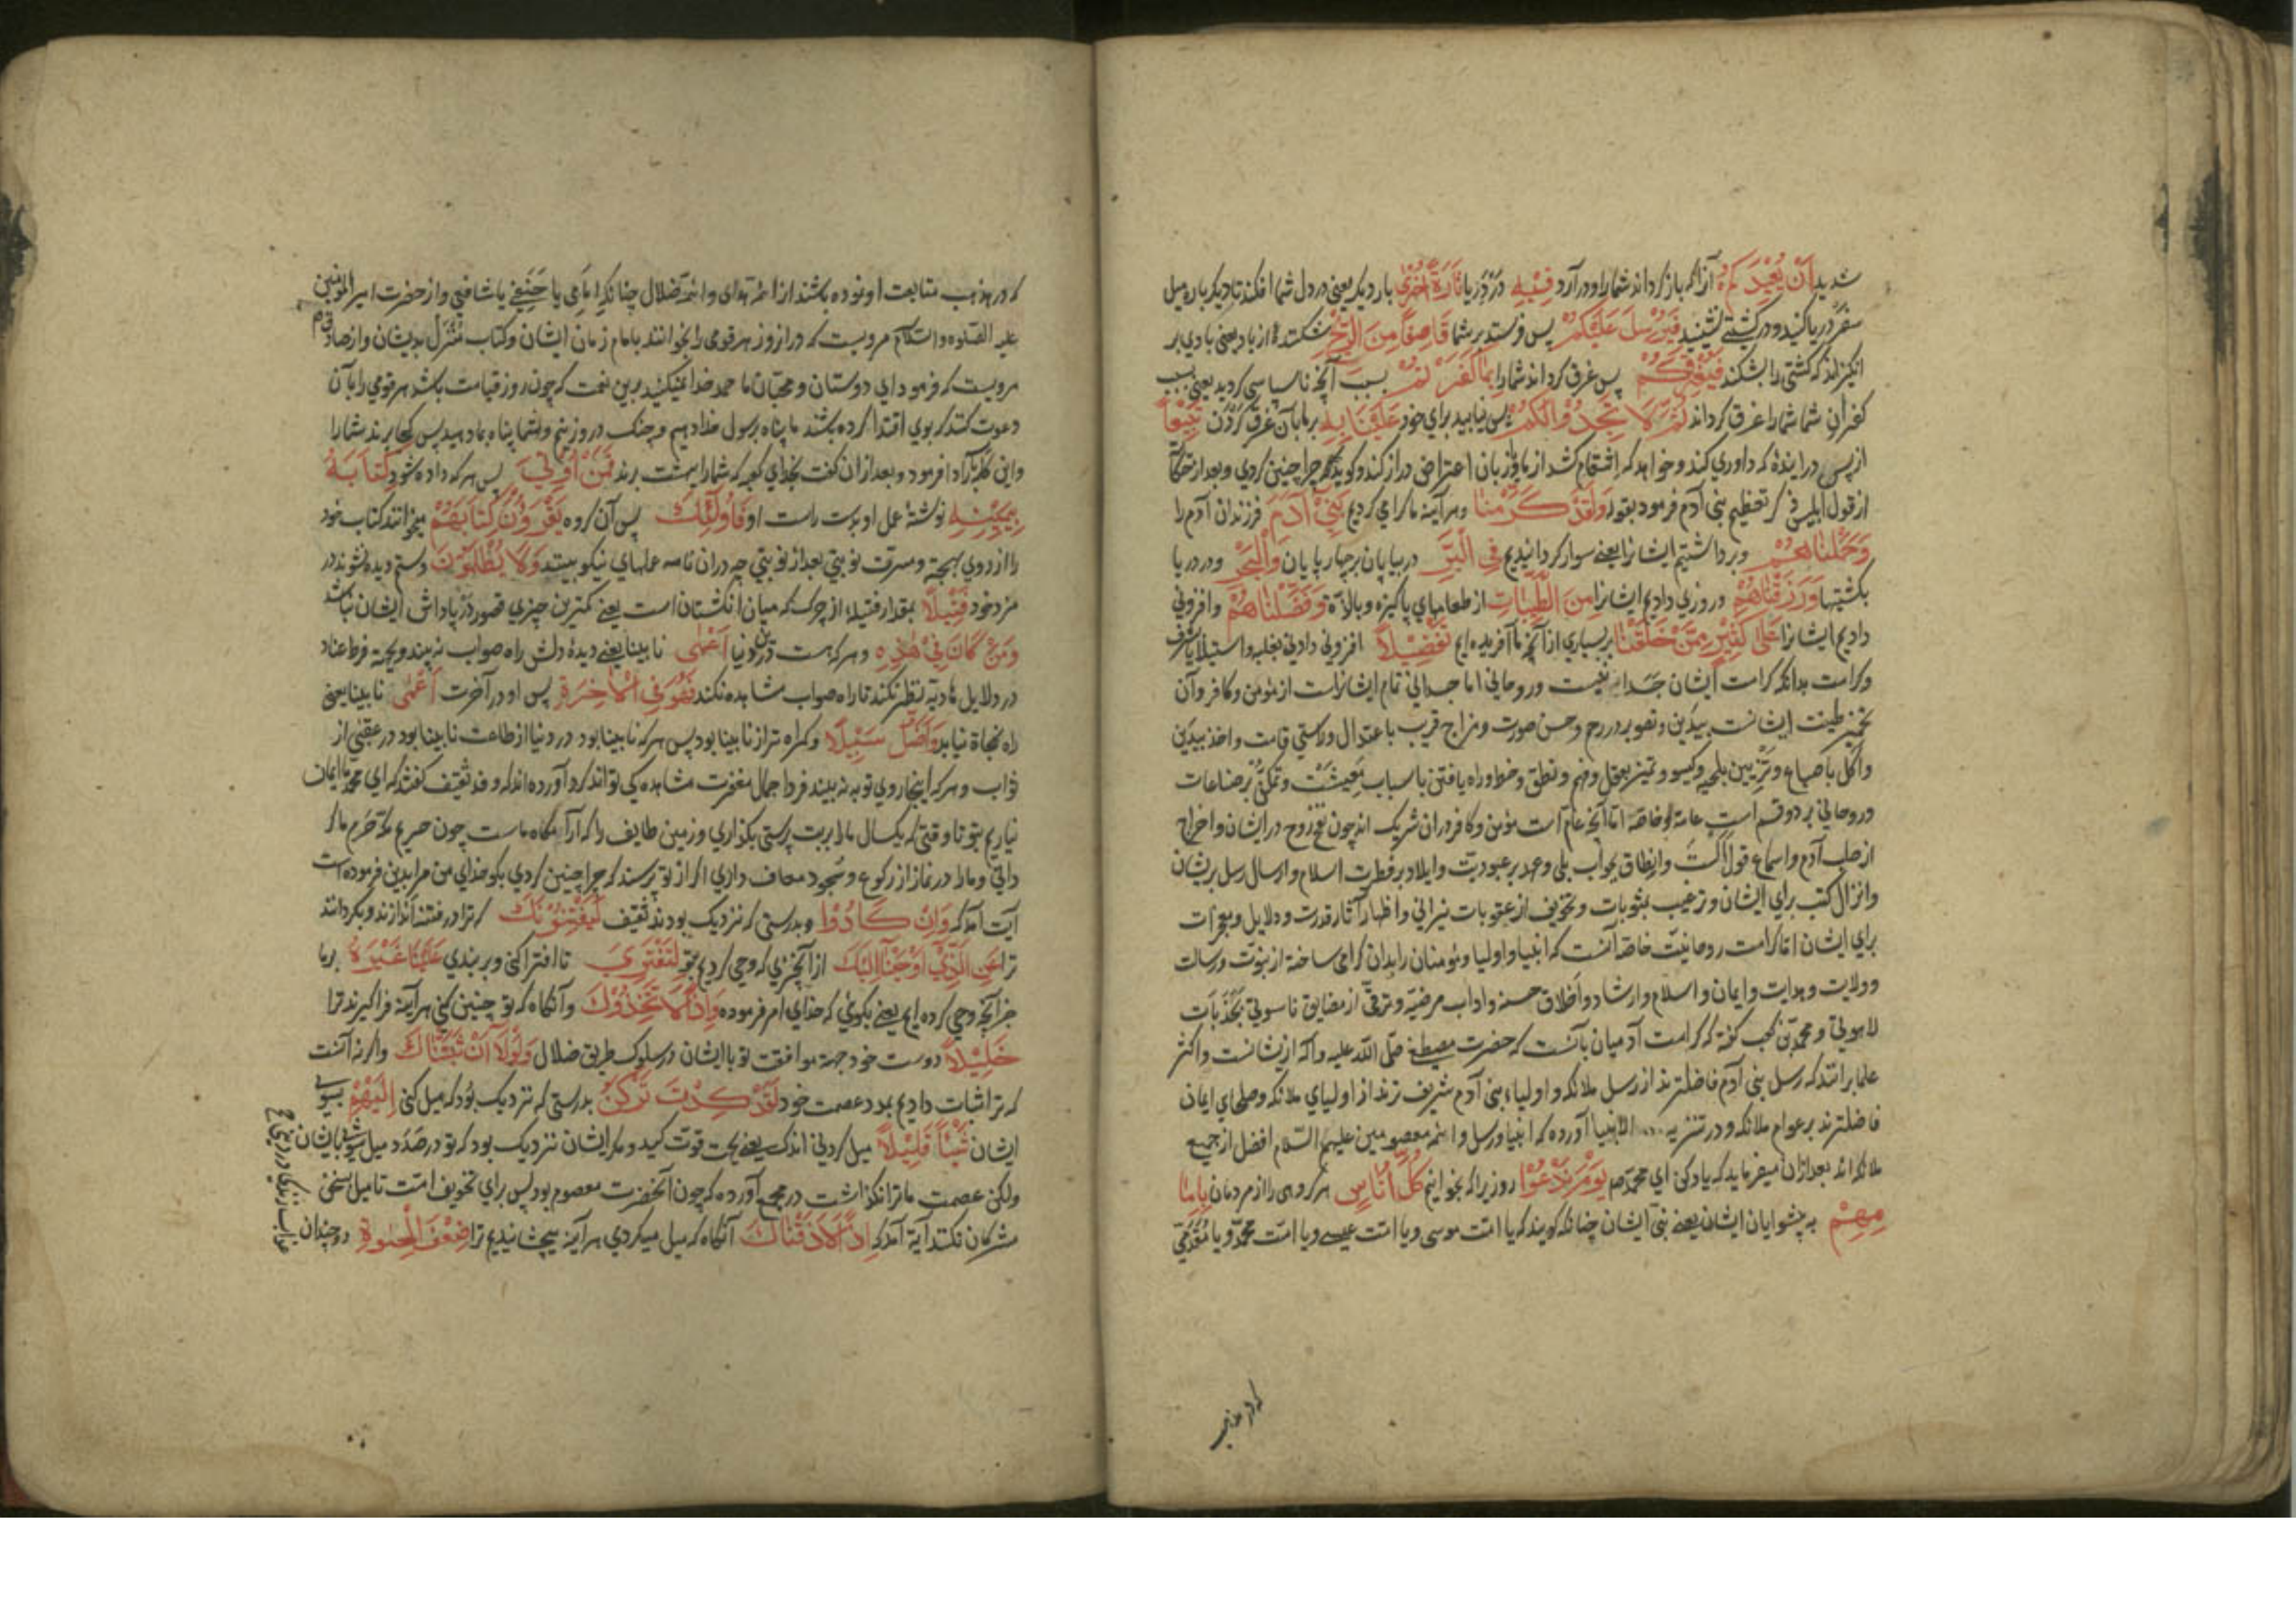 شدید اَنْ یُعِیْدَکُمْ از آنکه باز کرداند شما را و در آرد فِیْهِ در دریا تَارَةً اُخْرٰی بار دیکر یعنی در دل شما افکند تا دیکر باره میل
سفر دریا کنید و در کشتی نشینید فَیُرْسِلَ عَلَیْکُمْ پس فرستد بر شما قَاصِفًا مِنَ الرِّیْحِ شکننده از باد یعنی بادی بر
انکیزاند که کشتی را بشکند فَیُغْرِقَکُمْ پس غرق کرداند شما را بِمَا کَفَرْتُمْ بسبب آنچه ناسپاسی کردید یعنی بسبب
کفران شما شما را غرق کرداند ثُمَّ لَا تَجِدُوْا لَکُمْ پس نیابید برای خود عَلَیْنَا بِهِ بر ما بآن غرق کردن تَبِیْعًا
از پس در اینده که داوری کند و خواهد که انتقام کشد از ما و زبان اعتراض دراز کند و کوید که چرا چنین کردی و بعد از حکایت
از قول ابلیس ذکر تعظیم بنی آدم فرمود بقوله وَلَقَدْ کَرَّمْنَا و هر آینه ما کرامی کردیم بَنِیْ آدَمَ فرزندان آدم را
وَحَمَلْنَاهُمْ و برداشتیم ایشانرا یعنی سوار کردانیدیم فِی الْبَرِّ در بیابان بر چهارپایان وَالْبَحْرِ و در دریا
بکشتیها وَرَزَقْنَاهُمْ و روزی دادیم ایشانرا مِنَ الطَّیِّبَاتِ از طعامهای پاکیزه و بالذّة وَفَضَّلْنَاهُمْ و افزونی
دادیم ایشانرا عَلٰی کَثِیْرٍ مِمَّنْ خَلَقْنَا بر بسیاری از آنچه ما آفریده ایم تَفْضِیْلًا افزونی دادنی بغلبه و استیلا یا بشرف
و کرامت بدانکه کرامت ایشان جسدانیست و روحانی اما جسدانی تمام ایشانراست از مؤمن و کافر و آن
تخمیر طینت ایشانست بیدین و تصویر در رحم و حسن صورت و مزاج قریب باعتدال و راستی قامت و اخذ بیدین
و اکل باصابع و تزیین بلحیه و کیسو و تمیز بعقل و فهم و نطق و خط و راه یافتن باسباب معیشت و تمکن بر صناعات
و روحانی بر دو قسم است عامه و خاصه اما آنچه عام است مؤمن و کافر دران شریک اند چون نفخ روح در ایشان و اخراج
از صلب آدم و اسماع قول الست و انطاق بجواب بلی و عهد بر عبودیت و ایلاد بر فطرت اسلام و ارسال رسل بریشان
و انزال کتب برای ایشان و ترغیب بمثوبات و تخویف از عقوبات نیرانی و اظهار آثار قدرت و دلایل و معجزات
برای ایشان اما کرامت روحانیت خاصه آنست که انبیا و اولیا و مؤمنان را بدان کرامی ساخته از نبوت و رسالت
و ولایت و هدایت و ایمان و اسلام و ارشاد و اخلاق حسنه و اداب مرضیه و ترقی از مضایق ناسوتی بجذبات
لاهوتی و محمد بن کعب کفته که کرامت آدمیان بآنست که حضرت مصطفی صلی الله علیه و آله ازیشانست و اکثر
علما برانند که رسل بنی آدم فاضلترند از رسل ملائکه و اولیاء بنی آدم شریف ترند از اولیای ملائکه و صلحای ایمان
فاضلترند بر عوام ملائکه و در تنزیه الانبیا آورده که انبیا و رسل و ائمه معصومین علیهم السلام افضل از جمیع
ملائکه اند بعد ازان میفرماید که یاد کن ای محمد صم یَوْمَ نَدْعُوْا روزیرا که بخوانیم کُلَّ اُنَاسٍ هر کروهی را از مردمان بِاِمَا
مِهِمْ به پیشوایان ایشان یعنی بنبی ایشان چنانکه کویند که یا امت موسی و یا امت عیسی و یا امت محمد و یا مقدمی
که در مذهب
که در مذهب متابعت او نموده باشند از ائمه هدی و ائمه ضلال چنانکه امامی یا حنیفی یا شافعی و از حضرت امیر المؤمنین
علیه الصلوه و السلام مرویست که دران روز هر قومی را بخوانند بامام زمان ایشان و کتاب منزل بدیشان و از صادق ع م
مرویست که فرمود ای دوستان و محبان ما حمد خدا میکنید برین نعمت که چون روز قیامت باشد هر قومی را بآن
دعوت کنند که بوی اقتدا کرده باشند ما پناه برسول خدا دهیم و چنک در وی زنیم و شما پناه بما دهید پس کجا برند شما را
و این کلمه را مکرر فرمود و بعد ازان کفت بخدای کعبه که شما را ببهشت برند فَمَنْ اُوْتِیَ پس هر که داده شود کِتَابَهُ
بِیَمِیْنِهِ نوشتۀ عمل او بدست راست او فَاُولٰئِکَ پس آن کروه یَقْرَؤُنَ کِتَابَهُمْ میخوانند کتاب خود
را از روی بهجت و مسرت نوبتی بعد از نوبتی چه دران نامه عملهای نیکو بینند وَلَا یُظْلَمُوْنَ و ستم دیده نشوند در
مزد خود فَتِیْلًا بمقدار فتیله از چرک که میان انکشتان است یعنی کمترین چیزی قصور در پاداش ایشان نباشد
وَمَنْ کَانَ فِیْ هٰذِهِ و هر که هست درین دنیا اَعْمٰی نابینا یعنی دیدۀ دلش راه صواب نه بیند و بجهة فرط عناد
در دلایل هادیه نظر نکند تا راه صواب مشاهده نکند فَهُوَ فِی الْاٰخِرَةِ پس او در آخرت اَعْمٰی نابینا یعنی
راه نجاة نیابد وَاَضَلُّ سَبِیْلًا و کمراه تر از نابینا بود پس هر که نابینا بود در دنیا از طاعت نابینا بود در عقبی از
ثواب و هر که اینجا روی توبه نه بیند فردا جمال مغفرت مشاهده کی تواند کرد آورده اند که وفد ثقیف کفتند که ای محمد ما ایمان
نیاریم بتو تا وقتی که یکسال ما را بر بت پرستی بکذاری و زمین طایف را که آرامکاه ماست چون حریم مکه حرم ما کر
دانی و ما را در نماز از رکوع و سجود معاف داری اکر از تو پرسند که چرا چنین کردی بکو خدای من مرا بدین فرموده است
آیت آمد که وَاِنْ کَادُوْا و بدرستی که نزدیک بودند ثقیف لَیَفْتِنُوْنَکَ که ترا در فتنه اندازند و بکردانند
ترا عَنِ الَّذِیْ اَوْحَیْنَا اِلَیْکَ از آنچیزی که وحی کردیم بتو لِتَفْتَرِیَ تا افترا کنی و بر بندی عَلَیْنَا غَیْرَهُ بر ما
جز آنچه وحی کرده ایم یعنی بکوئی که خدای امر فرموده وَاِذًا لَاتَّخَذُوْکَ و آنکاه که تو چنین کنی هر آینه فرا کیرند ترا
خَلِیْلًا دوست خود جهة موافقت تو با ایشان در سلوک طریق ضلال وَلَوْلَا اَنْ ثَبَّتْنَاکَ و اکر نه آنست
که ترا ثبات دادیم بمدد عصمت خود لَقَدْ کِدْتَ تَرْکَنُ بدرستی که نزدیک بود که میل کنی اِلَیْهِمْ بسوی
ایشان شَیْئًا قَلِیْلًا میل کردنی اندک یعنی بجهت قوت کید و مکر ایشان نزدیک بود که تو در صدد میل شوی بایشان
ولکن عصمت ما ترا نکذاشت در مجمع آورده که چون آنحضرت معصوم بود پس برای تخویف امت تا میل بسخن
مشرکان نکنند آیة آمد که اِذًا لَاَذَقْنَاکَ آنکاه که میل میکردی هر آینه میچشانیدیم ترا ضِعْفَ الْحَیٰوةِ دو چندان
عذاب زندکی در دنیا